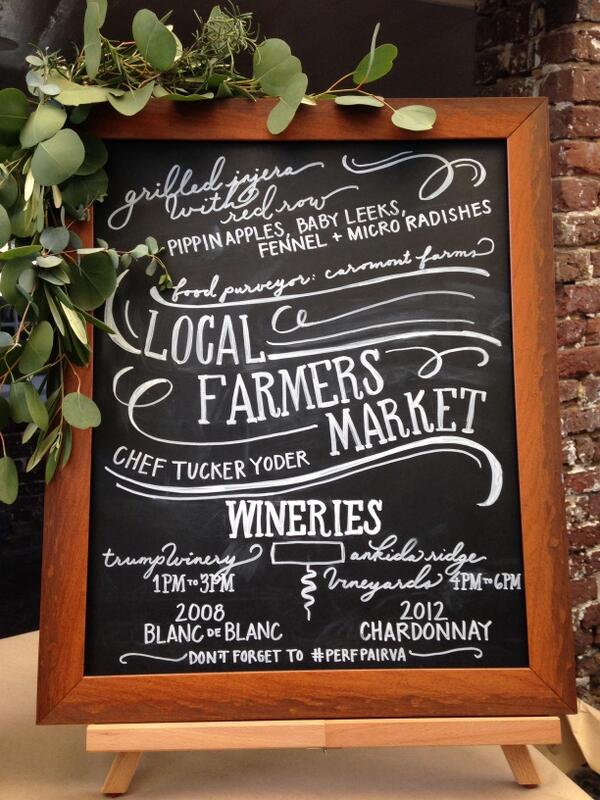 grilled injera
with
red row
PIPPIN APPLES, BABY LEEKS,
FENNEL + MICRO RADISHES
food purveyor: caromont farms
LOCAL
FARMERS
MARKET
CHEF TUCKER YODER
WINERIES
trump winery
1PM TO 3PM
2008
BLANC DE BLANC
ankida ridge
Vineyards 4PM TO 6PM
2012
CHARDONNAY
DON'T FORGET TO #PERFPAIRVA